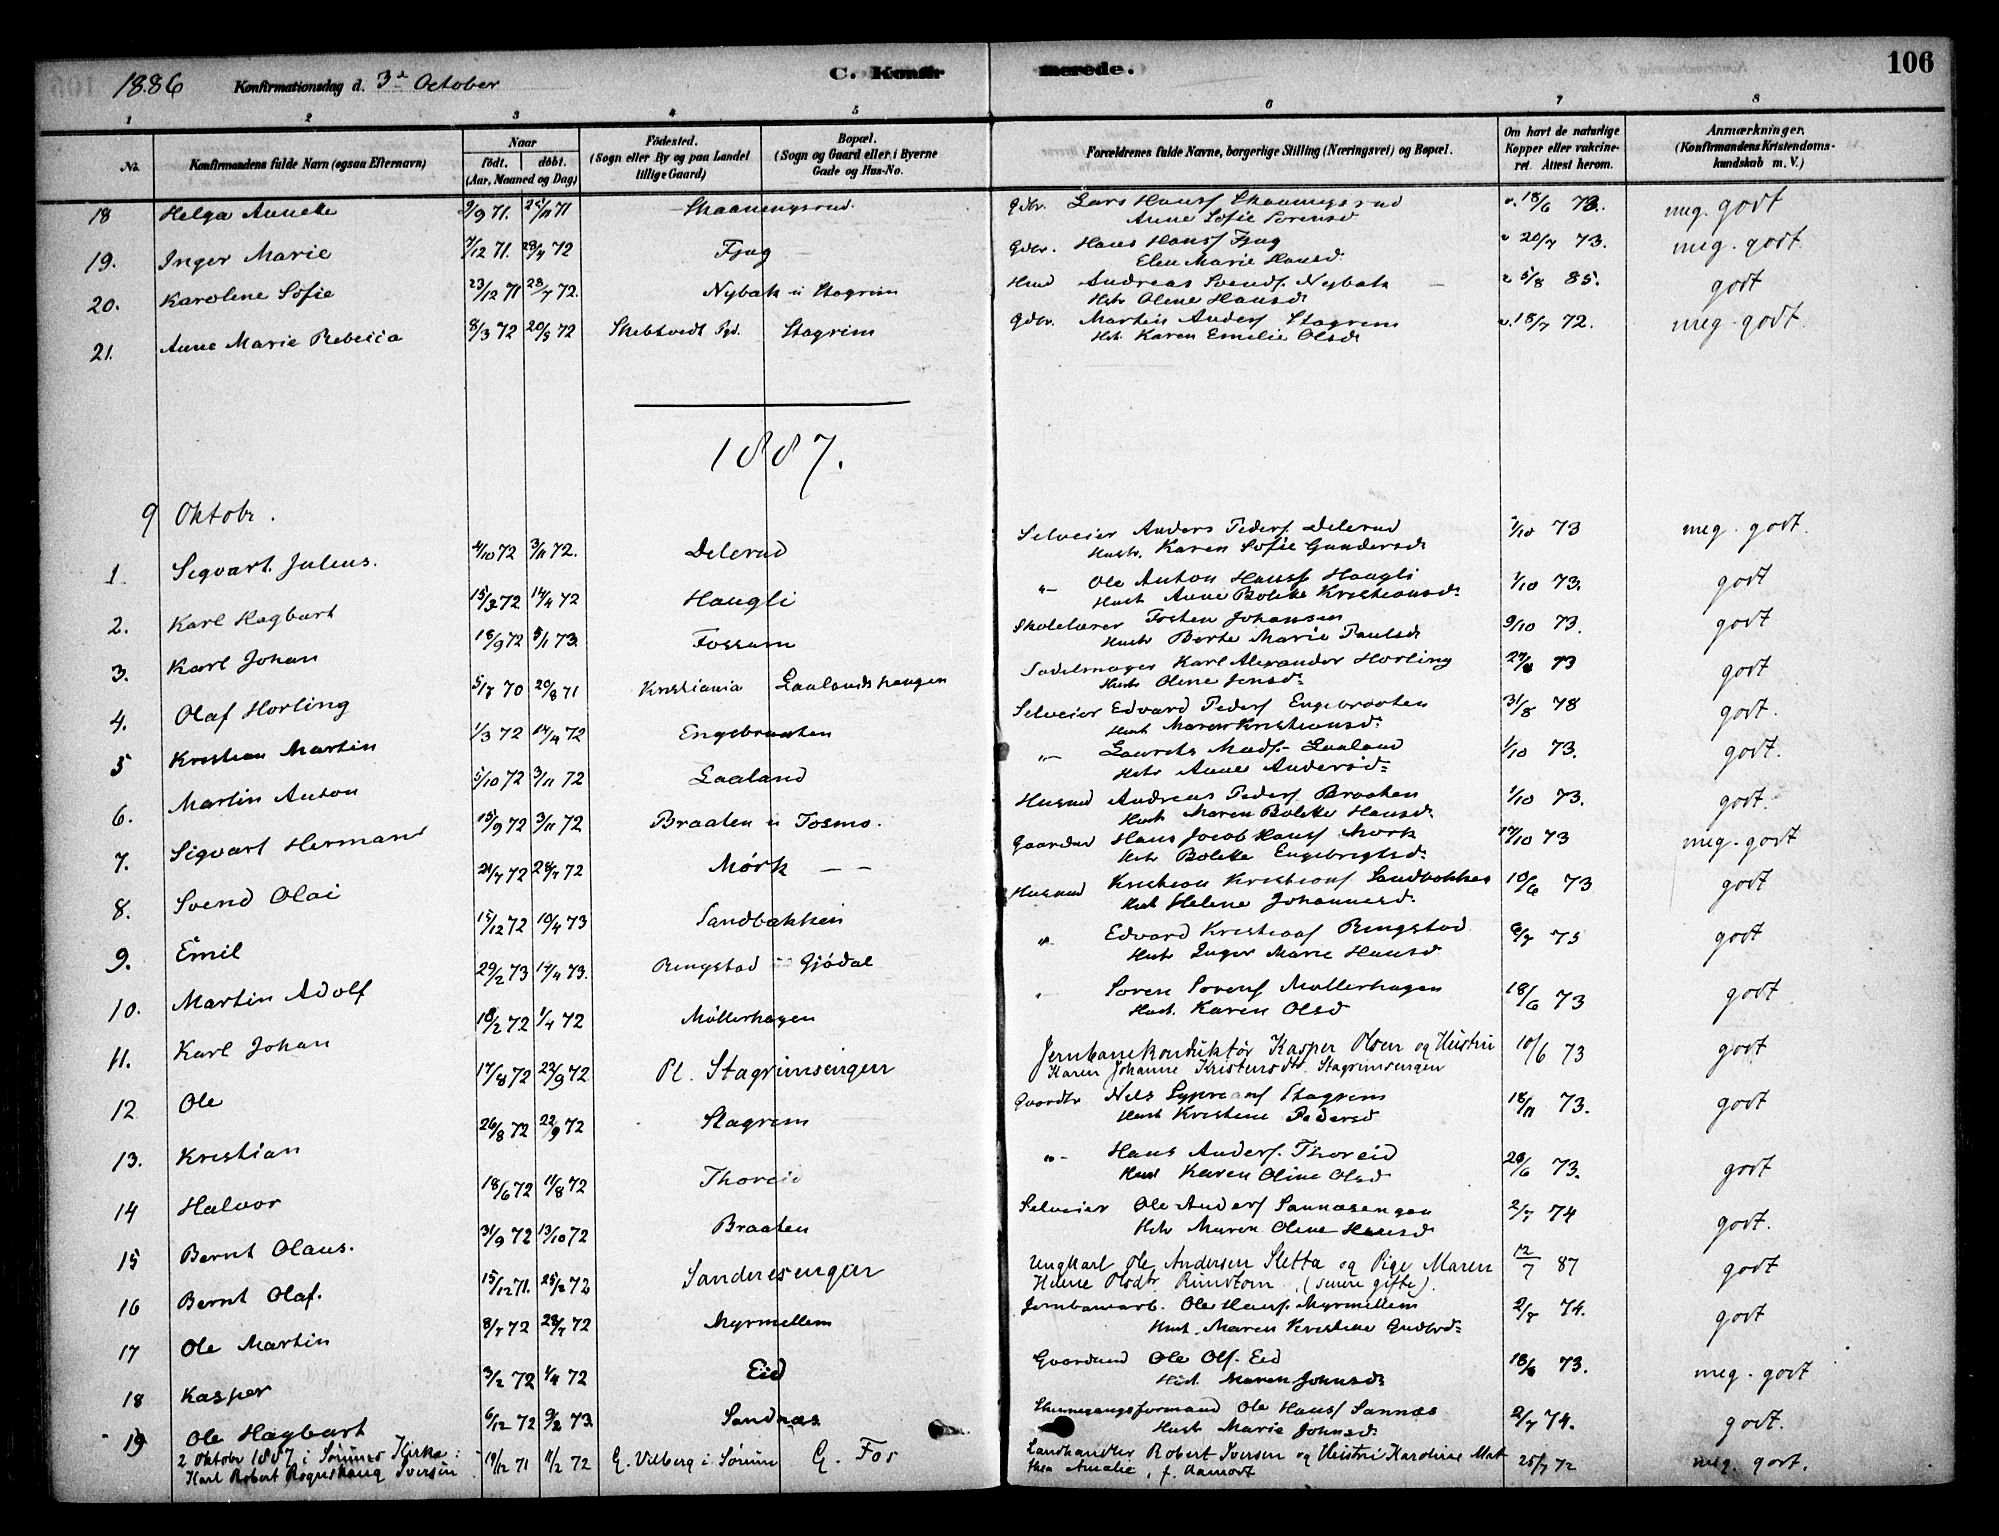 1886 Konfirmationsdag d. 3d October C. Konfirmerede. 106
1 2 3 4 5 6 7 8
No. Konfirmandens fulde Navn (ogsaa Efternavn) Naar født. døbt. (Aar, Maaned og Dag) Fødested. (Sogn eller By og paa Landet tillige Gaard) Bopæl. (Sogn og Gaard eller i Byerne Gade og Hus-No. Forældrenes fulde Navne, borgerlige Stilling (Næringsvei) og Bopæl. Om havt de naturlige Kopper eller vakcineret. Attest herom. Anmærkninger. (Konfirmandens Kristendomskundskab m. V.)
18 Helga Annette 9/9 71. 25/11 71 Skaaningsrud Gdbr. Lars Hansf Skaaningsrud v. 18/6 73. meg. godt
Anne Sofie Sorensd
19. Inger Marie 7/12 71. 28/4 72 Fjug Gdbr. Hans Hansf Fjug v 20/7 73. meg. godt.
Elen Marie Hansd.
20. Karolene Sofie 23/12 71 28/7 72. Nybak u Stagrim Hmd Andreas Svends. Nybak v 5/8 85. godt
Hstr Olene Hansd.
21. Anne Marie Rebecca 8/3 72 20/5 72 Skebtvedt Pgd. Stagrim Gdbr. Martin Anders Stagrim v. 18/7 72. meg. godt.
Hst. Karen Emilie Olsd.
1887.
9 Oktobr.
1. Sigvart Julius. 4/10 72 3/11 72. Delerud Selveier Anders Peders. Delerud 1/10 73 meg. godt.
Hustr. Karen Sofie Gundersd.
2. Karl Hagbart 15/3 72 14/4 72 Haugli "- Ole Anton Hansf Haugli 1/10 73. godt
Hust Anne Bolette Kristiansd.
3. Karl Johan 18/9 72 5/1 73. Fossum Skolelærer Torsten Johansen 9/10 73. godt
Hustr Berte Marie Paulsd.
4. Olaf Horling 5/7 70 20/8 71 Kristiania Laalandshaugen Sadelmager Karl Alexander Horling 27/8 73 godt
Hustr Olene Jensd.
5 Kristian Martin 1/3 72 14/4 72 Engebraaten Selveier Edvard Pedersf Engebraaten 31/8 78 godt.
Hust Maren Kristiansd.
6. Martin Anton 5/10 72 3/11 72 Laaland "- Laurits Madsf- Laaland 1/10 73. godt.
Hstr Anne Andersd.
7. Sigvart Hermand 15/9 72 3/11 72 Braaten u Fosmo. Husmd Andreas Pedersf Braaten 1/10 73. godt.
Hust Maren Bolette Hansd.
8. Svend Olai 21/7 72 28/7 72 Mørk Gaardmd Hans Jacob Hansf Mørk 17/10 73 meg. godt
Hstr Bolette Engebrigtsd.
9. Emil 15/12 72 10/4 73 Sandbakken Husmd Kristian Kristiansf Sandbakken 10/6 73 godt
Hust Helene Johannesd.
10. Martin Adolf 20/2 73 14/4 73. Ringstad Gjødal " Edvard Kristiansf Ringstad 8/7 75 godt
Hustr Inger Marie Hansd
11. Karl Johan 18/2 72 1/4 72 Møllerhagen " Soren Sorensf Møllerhagen 18/6 73 godt
Hust. Karen Olsd
12 Ole 17/8 72 22/9 72 Pl. Stagrimsengen Jernbanekonduktør Kasper Olsen og Hustru 10/6 73 godt
Karen Johanne Kristensdtr. Stagrimsengen
13. Kristian 26/8 72 22/9 72 Stagrim Gaardbr Nils Syprianf Stagrim 18/11 73. godt
Hust Kristine Pedersd
14 Halvor 18/6 72 11/8 72 Thoreid "- Hans Anders. Thoreid 28/6 73. godt
Hust Karen Oline Olsd
15 Bernt Olaus. 31/9 72 13/10 72 Braaten Selveier Ole Andersf Sannæsengen 2/7 74 godt.
Hstr Maren Olene Hansd
16 Bernt Olaf. 15/12 71. 25/2 72 Sandnesengen Ungkarl Ole Andersen Sletta og Pige Maren 12/7 87 godt
Helene Olsdtr Rimstorn (senere gifte).
17 Ole Martin 8/7 72 28/7 72 Myrmellem Jernbanearb. Ole Hansf. Myrmellem 2/7 74. godt
Hust. Maren Kristine Gudbrd.
18 Kasper 3/2 72 1/4 72 Eid Gaardmd Ole Olf. Eid 18/6 73. meg. godt
Hust. Maren Johnsd.
19 Ole Hagbart 6/12 72 9/2 73. Sandnæs Skinnegangsformand Ole Hansf Sannæs 2/7 74. godt.
Hust Marie Johnsd.
2 Oktobr 1887 i Sørums Kirke:
Karl Robert Rognshaug Iversen 19/12 71 11/2 72 G. Vilberg i Sørum G. Fos Landhandler Robert Iversen og Hustru Karoline Mat 25/7 72 meg. godt.
hea Amalie, f. Aamodt